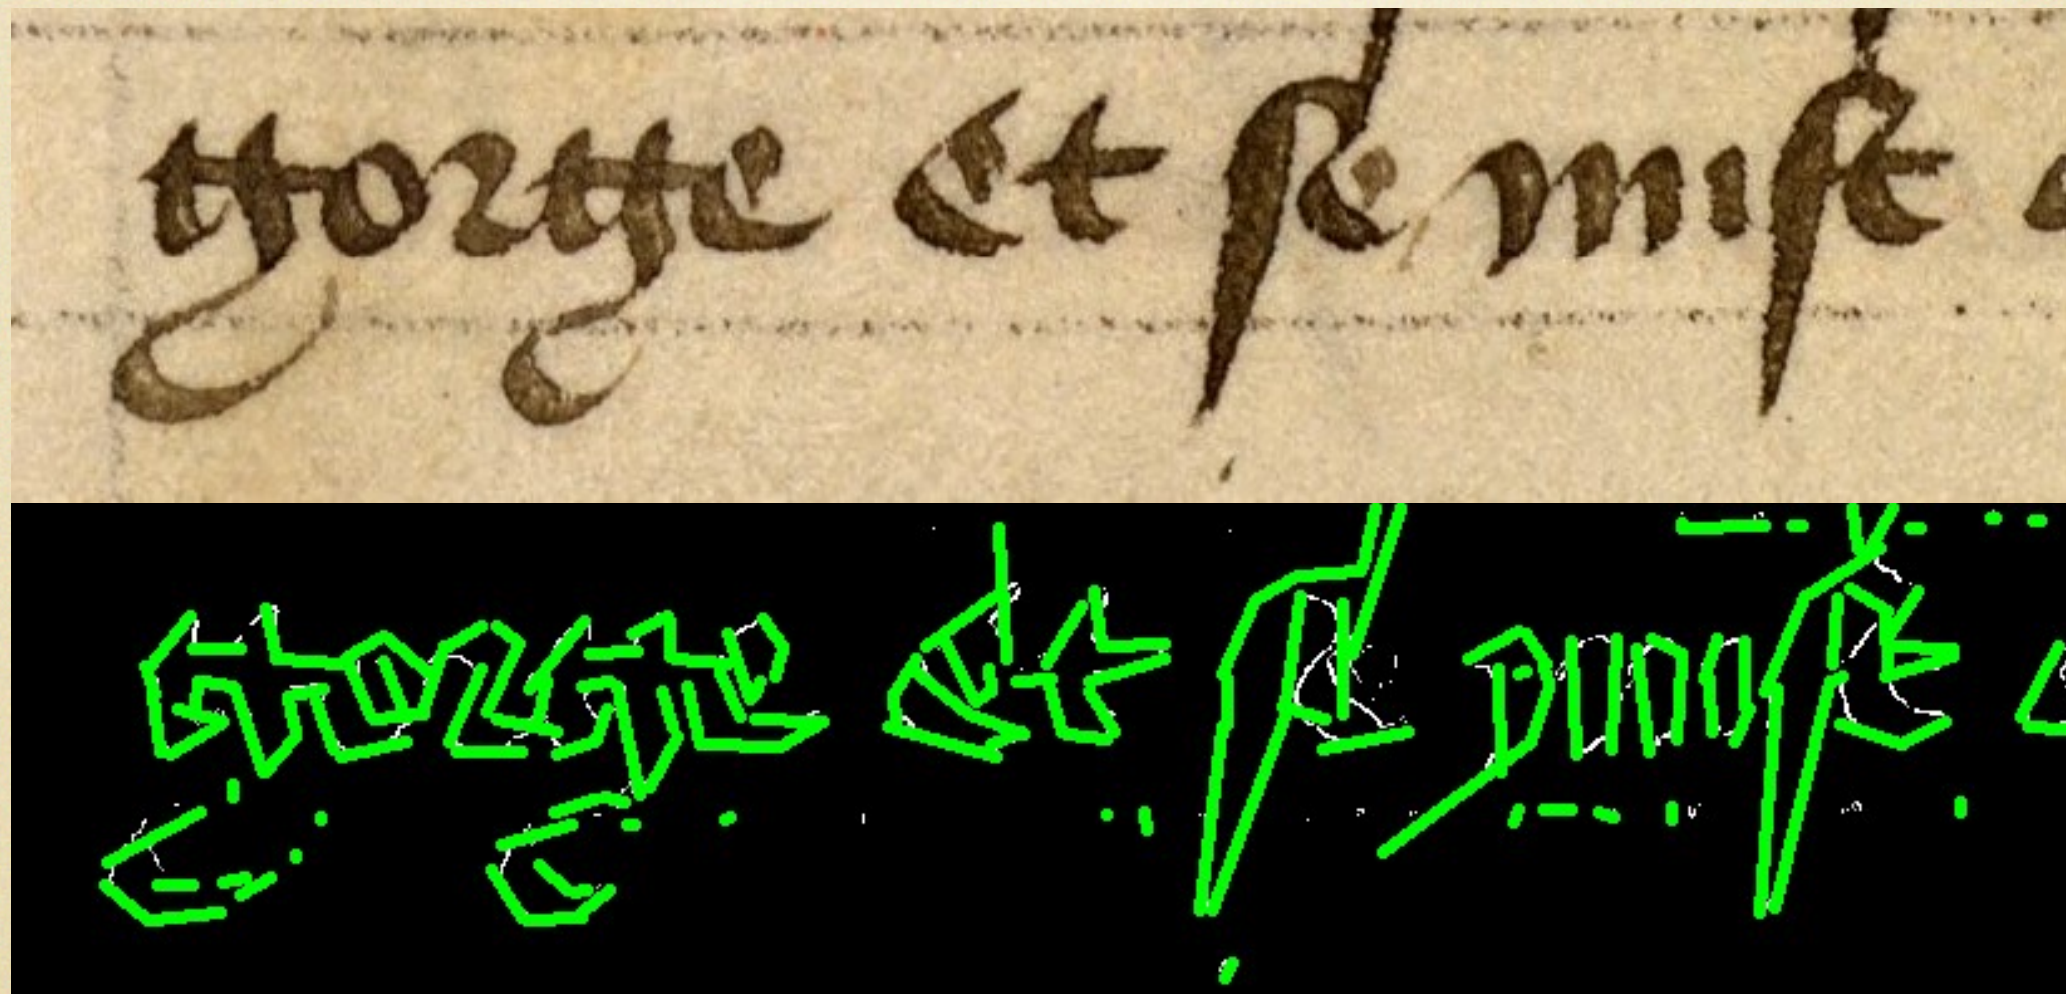 gorge et se mist